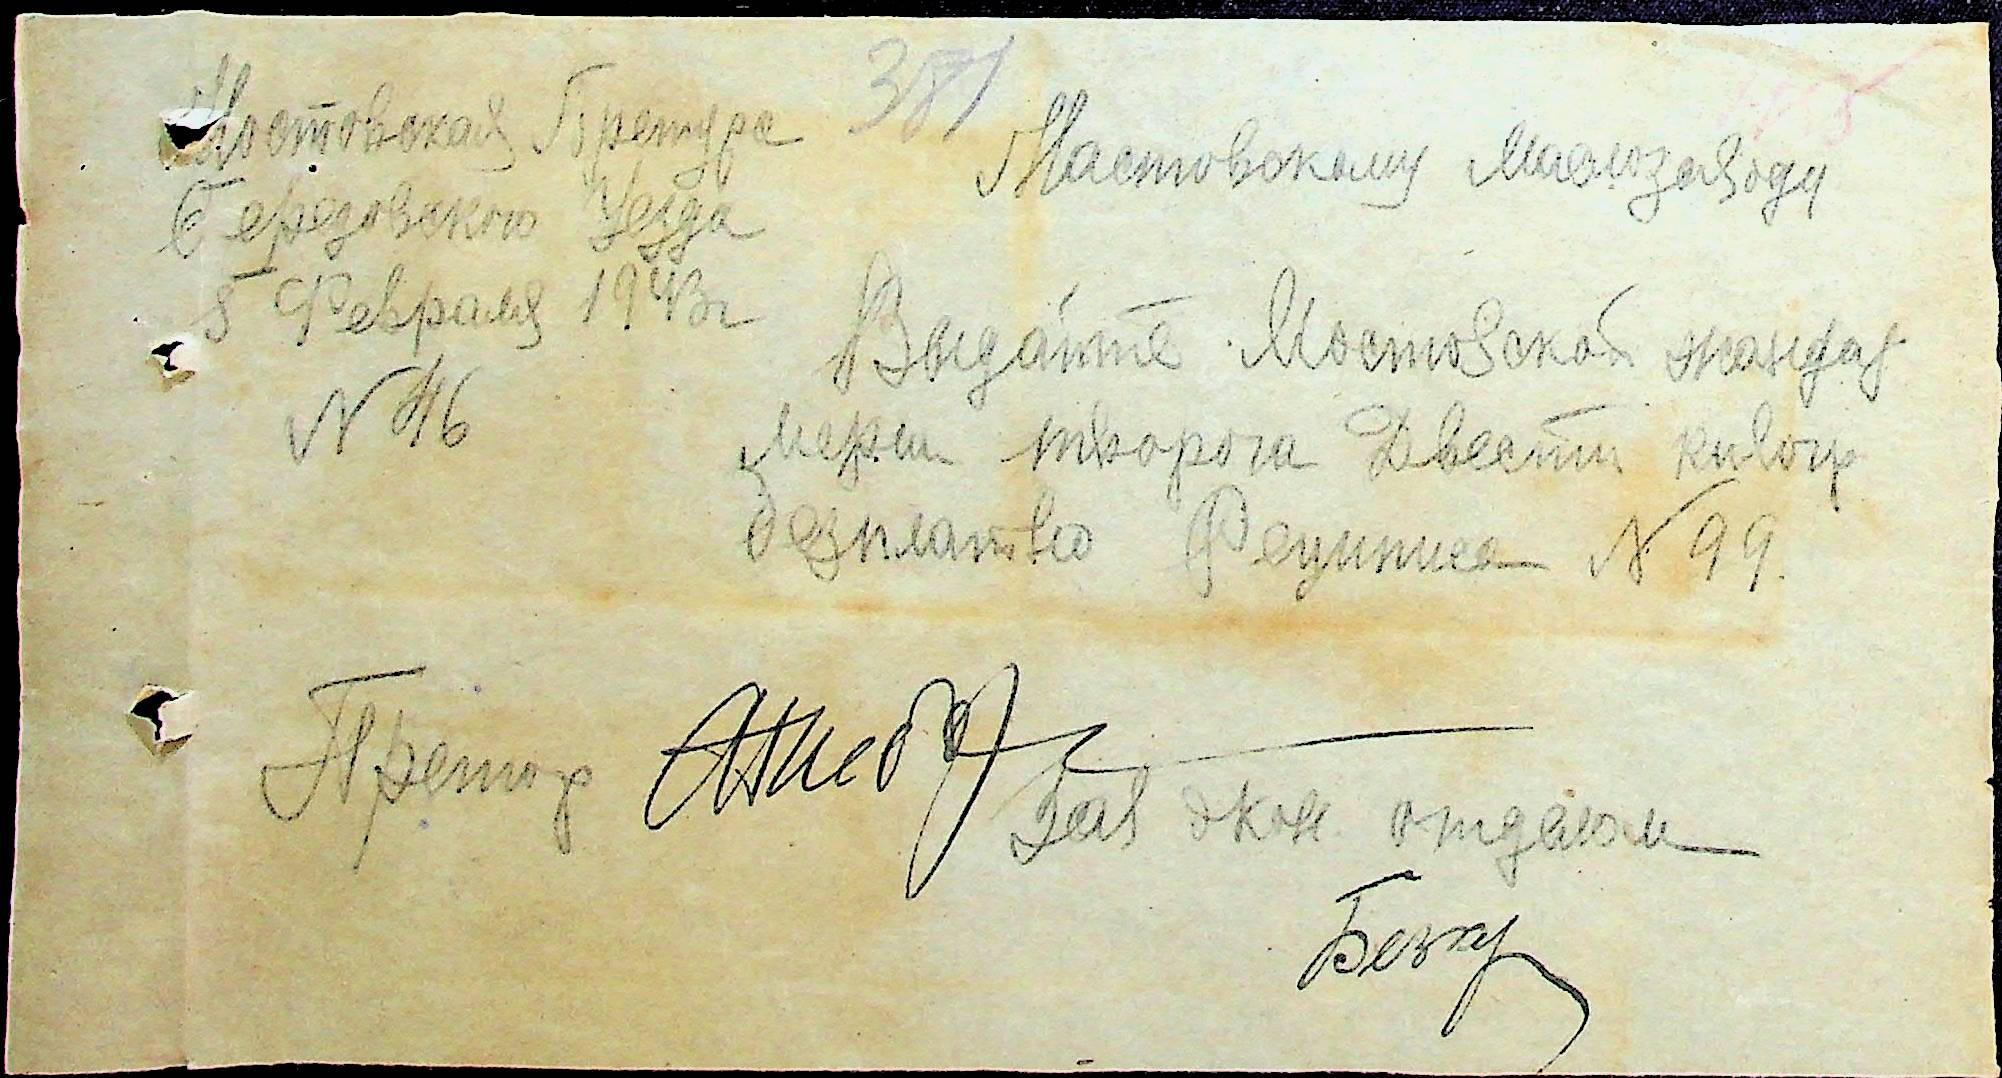 381
Мостовская Претура
Березовского Уезда
5 Февраля 1943 г
N 46
Мастовскому Маслозаводу
Выдайте Мостовской жандар
мерии творога Двести килогр
безплатно N 99.
Претор
Зав экон. отделом